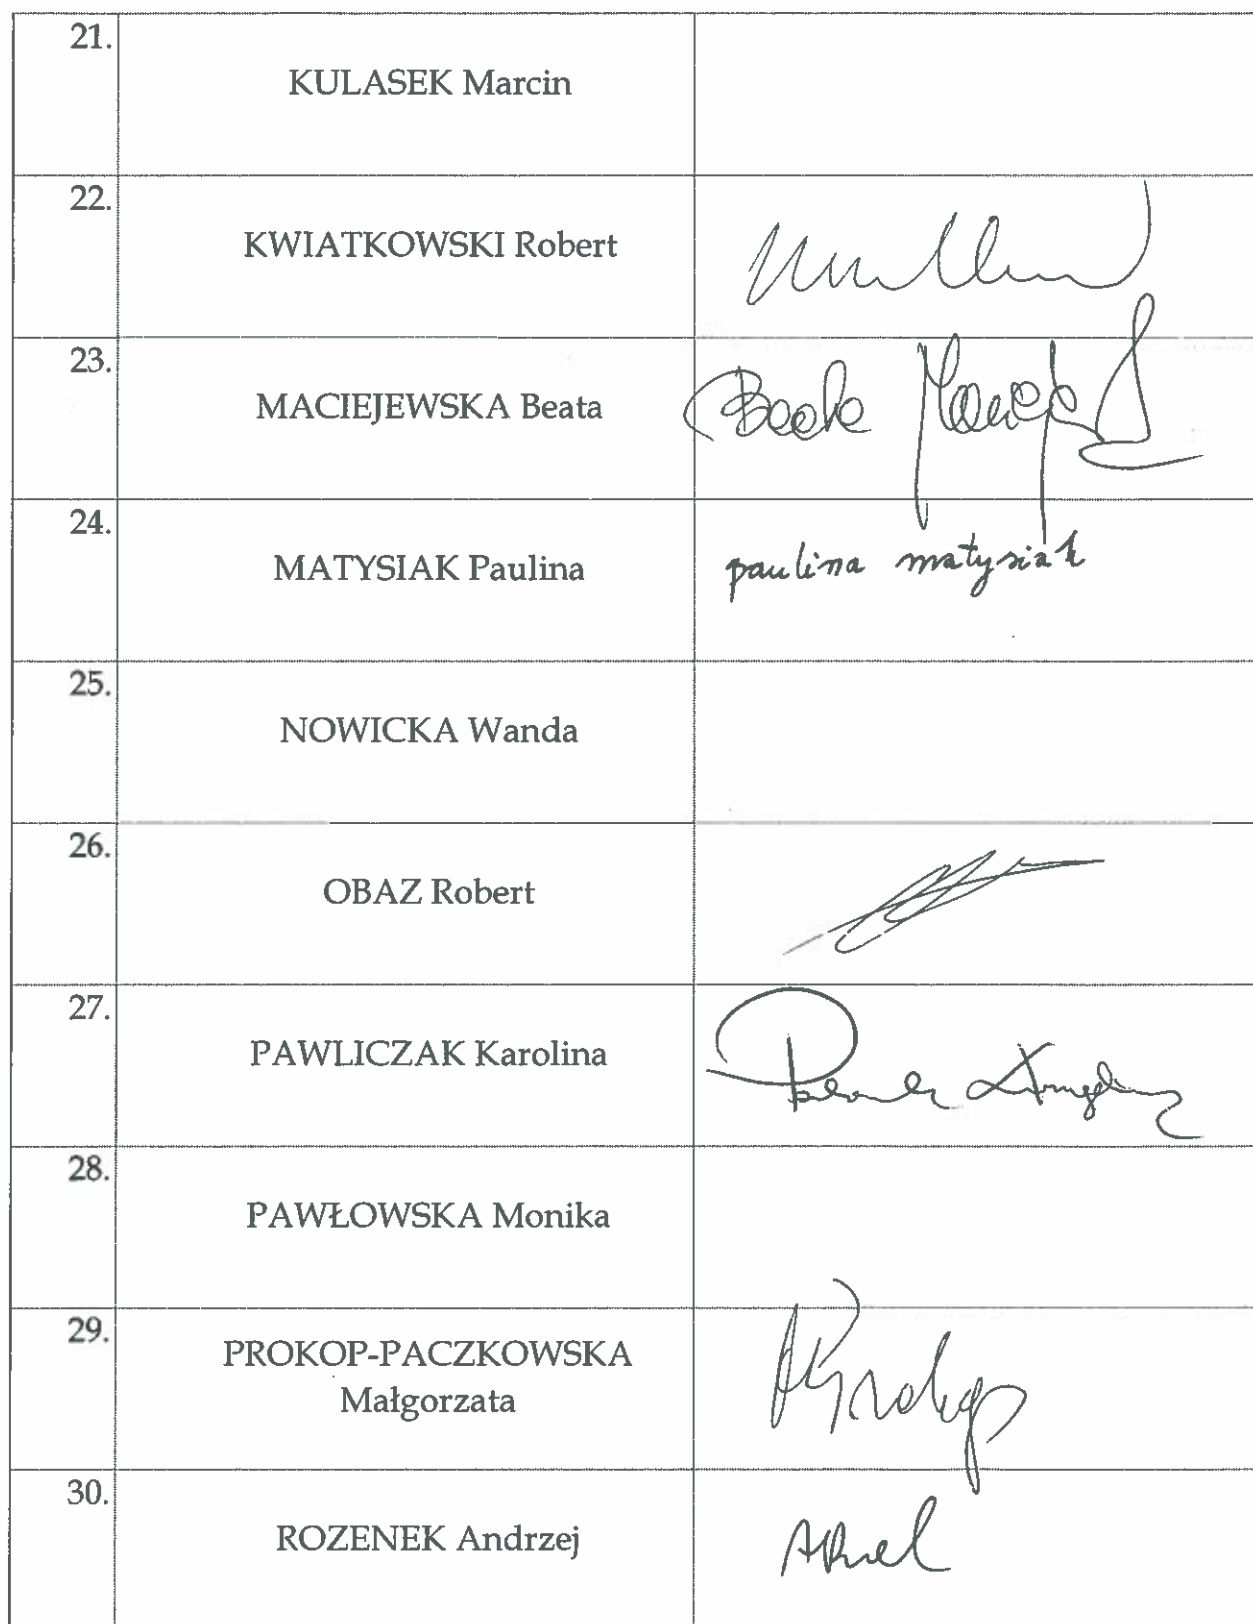 21.
KULASEK Marcin
22.
KWIATKOWSKI Robert
23.
MACIEJEWSKA Beata
Beata
24.
MATYSIAK Paulina
paulina matysiak
25.
NOWICKA Wanda
26.
OBAZ Robert
27.
PAWLICZAK Karolina
28.
PAWŁOWSKA Monika
29.
PROKOP-PACZKOWSKA
Małgorzata
30.
ROZENEK Andrzej